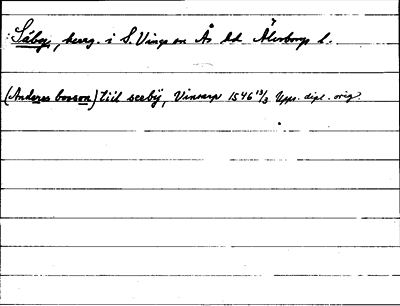 Säby, herrg. i S. Vings sn Ås hd Älvsborgs l.
(Anderes bosson) tiil seebÿ, Vinsarp 1546 13/3 Upps. dipl. orig.